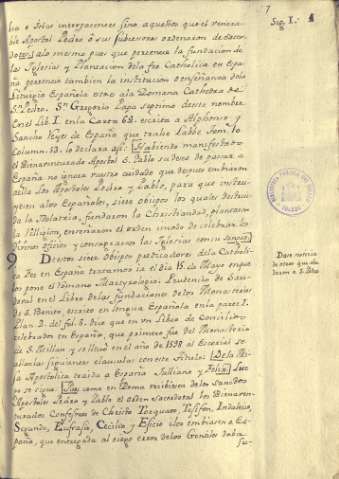 7
Sig. I.ª 1
lia e Islas interpoçeiones sino aquellos que el venera-
ble Apostol Pedro ô sus subcesores ordenaron de Sacer-
dotes: alo mesmo pues que pertenece la fundacion de
las Iglesias y Plantacion dela fee Catholica en Espa
ña pertenecio tambien la institucion ô enseñanza dela
Liturgia Española esto a la Romana Cathedra de
S.n Pedro. S.n Gregorio Papa septimo deste nombre
en el Lib. I. en la Carta 63. escrita a Alphonso y
Sancho Reyes de España que trahe Labbe tom. 10
Column. 53. lo declara assi: Habiendo manifestado
el Bienaventurado Apostol S. Pablo su deseo de passar a
España no ignora vuestro cuidado que despues embiaron
allá los Apostoles Pedro y Pablo, para que instru-
yesen alos Españoles, siete obispos los quales destrui-
da la Idolatria, fundaron la Christiandad, plantaron
la Religion, enseñaron el orden i modo de celebrar los
Divinos Oficios y consagraron las Iglesias con su sangre.
9 Destos siete obispos predicadores dela Catholi-
ca Fee en España tratamos ia el dia 15. de Mayo en que
los pone el Romano Martyrologio: Prudencio de San-
doval en el Libro de las fundaciones de los Monasterios
de S. Benito, escrito en lengua Española en la parte I.
S. Millan 2. del fol. 5. dice que en un Libro de Concilios
celebrados en España, que primero fue del Monasterio
de S. Millan y se llevó en el año de 1598 al Escorial se
allan las siguientes clausulas con este titulo: Dela Mi-
sa Apostolica traida a España
lo que se sigue. Que como en Roma recibiesen de los Sanctos
Apostoles Pedro y Pablo el orden Sacerdotal los Bienaven-
turados Confesores de Christo Torquato, Tesifon, Indalecio,
Segundo, Eufrasio, Cecilio, y Esicio i los embiasen a Es-
paña, que entregada al ciego error de los Gentiles daba